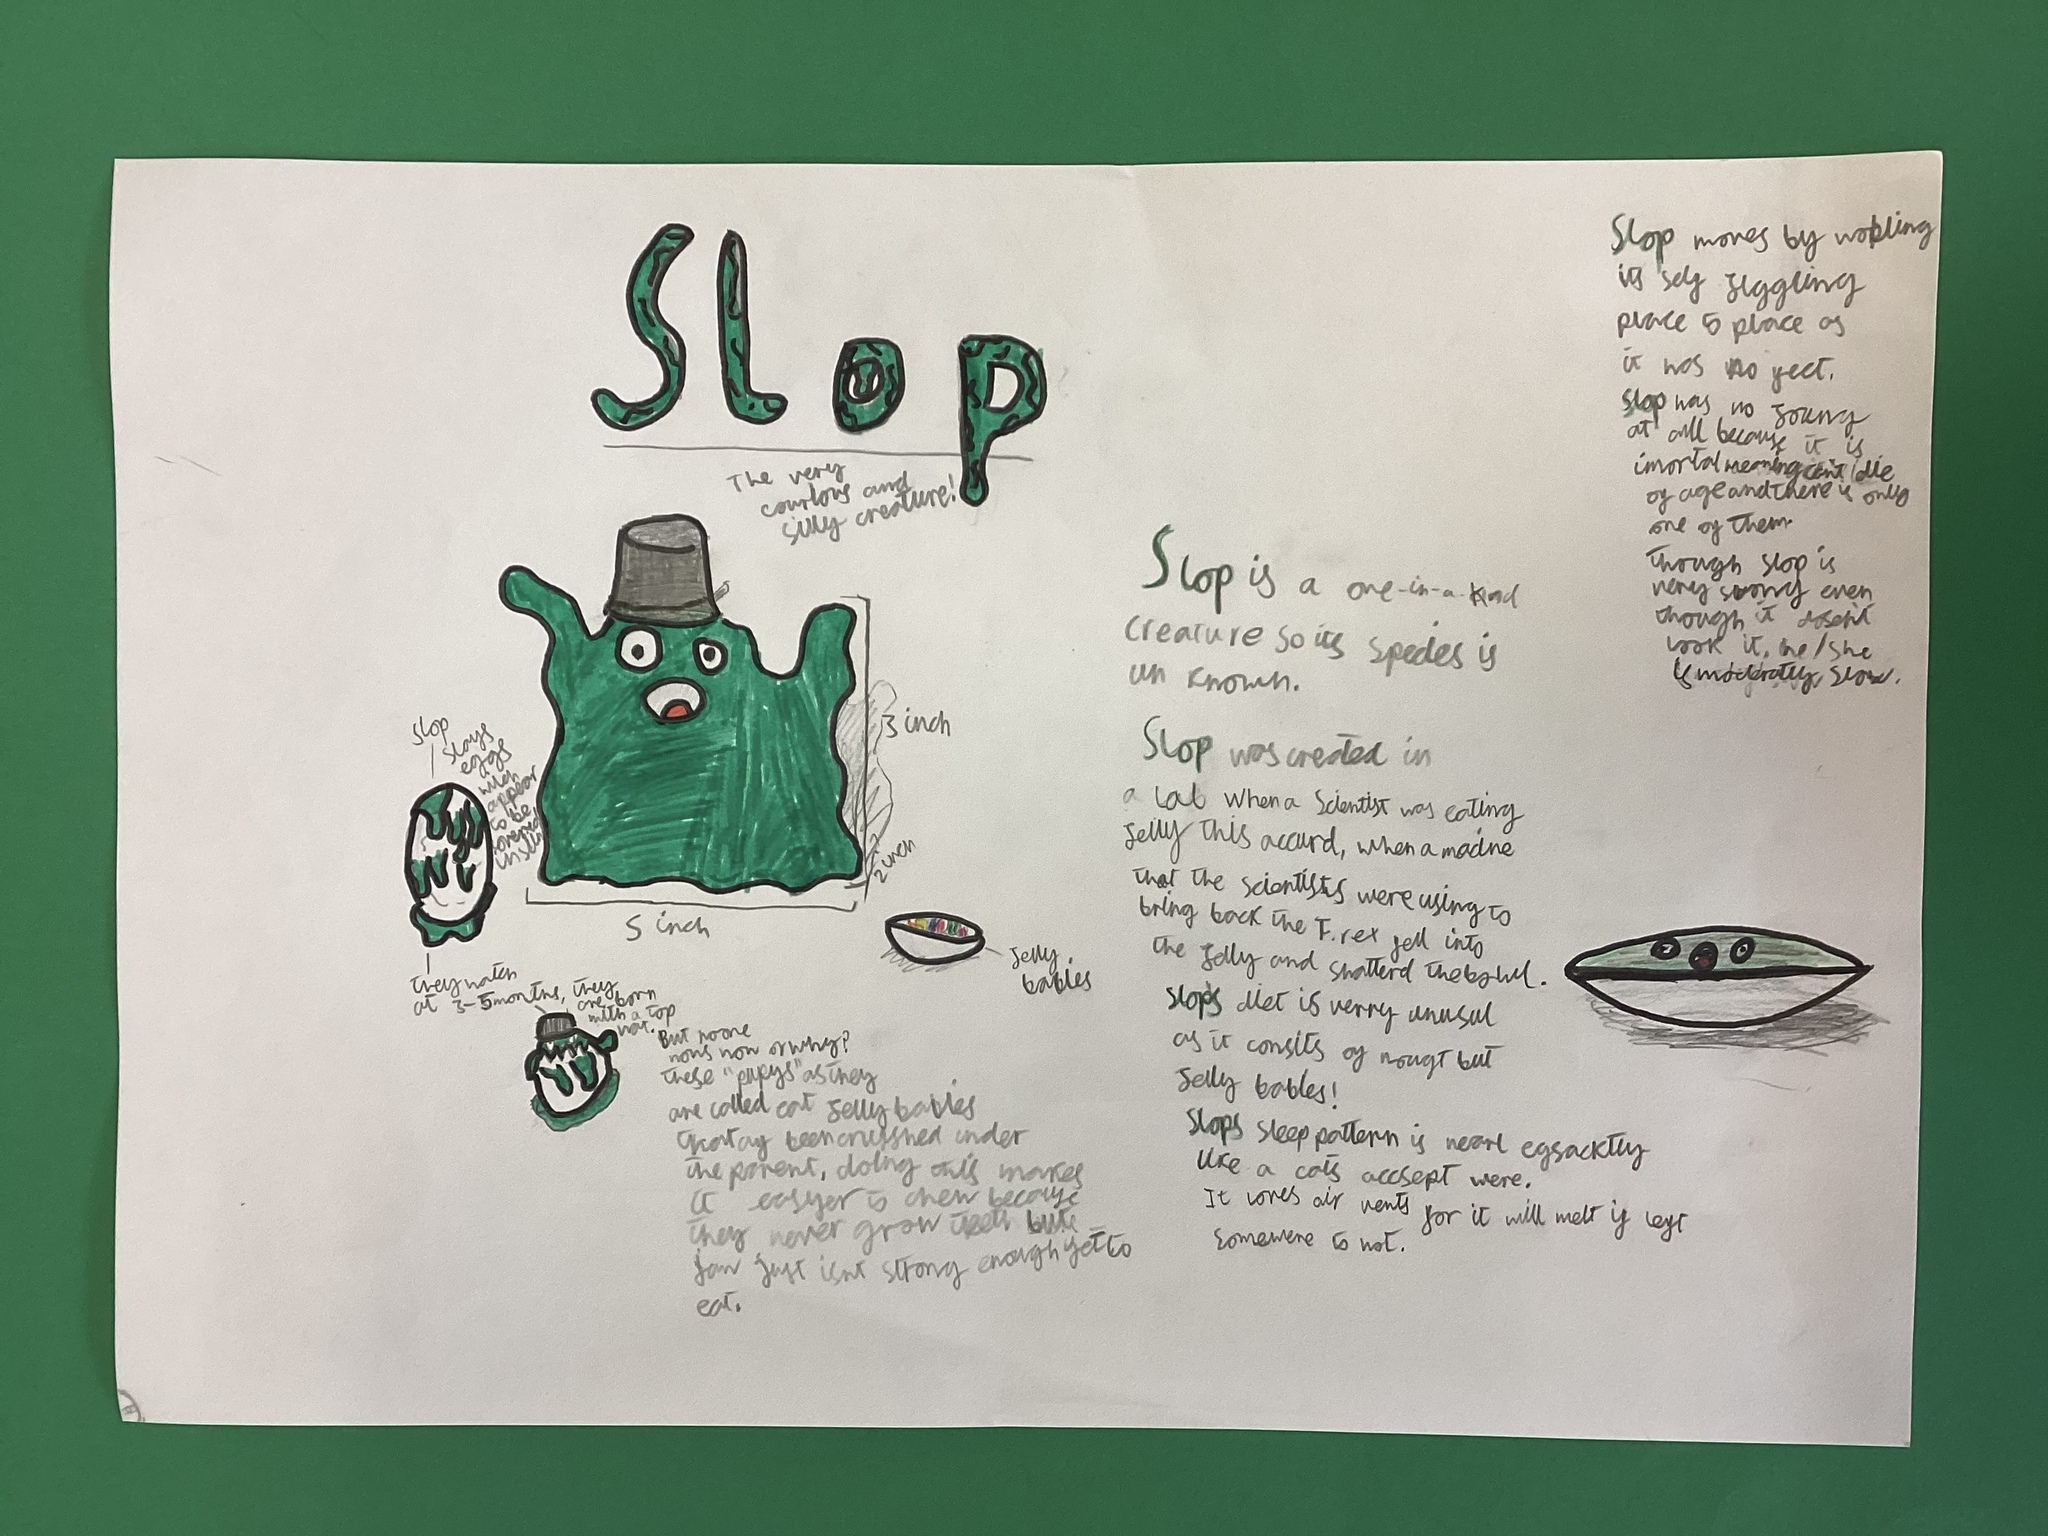 Slop
The very
courious and
silly creature!
3 inch
2 inch
5 inch
Jelly
babies
Slop
slays
eggs
wich
appear
to be
covered
in slim
they hatch
at 3-5 months, they
are born
with a top
hat.
But no one
nows how or why?
these "pupys" as they
are called eat Jelly babies
that ay been crushed under
the parent, doing this makes
it easyer to chew because
they never grow teeth but
jaw just isnt strong enough yet to
eat.
Slop is a one-in-a-kind
creature so its species is
un known.
Slop was created in
a lab when a scientist was eating
Jelly this accurd, when a macine
that the scientists were using to
bring back the T.rex fell into
the Jelly and shatterd the bowl.
Slop's diet is verry unusul
as it consits of nougt but
Jelly babies!
Slops sleep pattern is nearl egsacktly
like a cats accsept were.
It loves air vents for it will melt if left
somewere to hot.
Slop moves by wobling
its self Jiggling
place to place as
it was no feet.
Slop was no young
at all because it is
imortal meaning cant die
of age and there is only
one of them.
though slop is
very strong even
though it dosent
look it, he/she
is modratly slow.